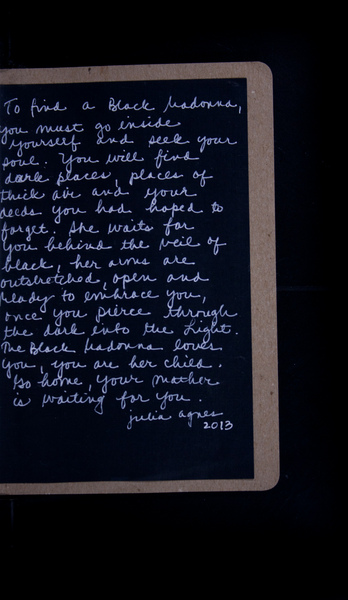 To find a Black Madonna,
you must go inside
yourself and seek your
soul. You will find
dark places, places of
thick air and your
deeds you had hoped to
forget. She waits for
you behind the veil of
black, her arms are
outstretched, open and
ready to embrace you,
once you pierce through
the dark into the Light.
The Black Madonna loves
you, you are her child.
Go home, your mother
is waiting for you.
julia agnes
2013